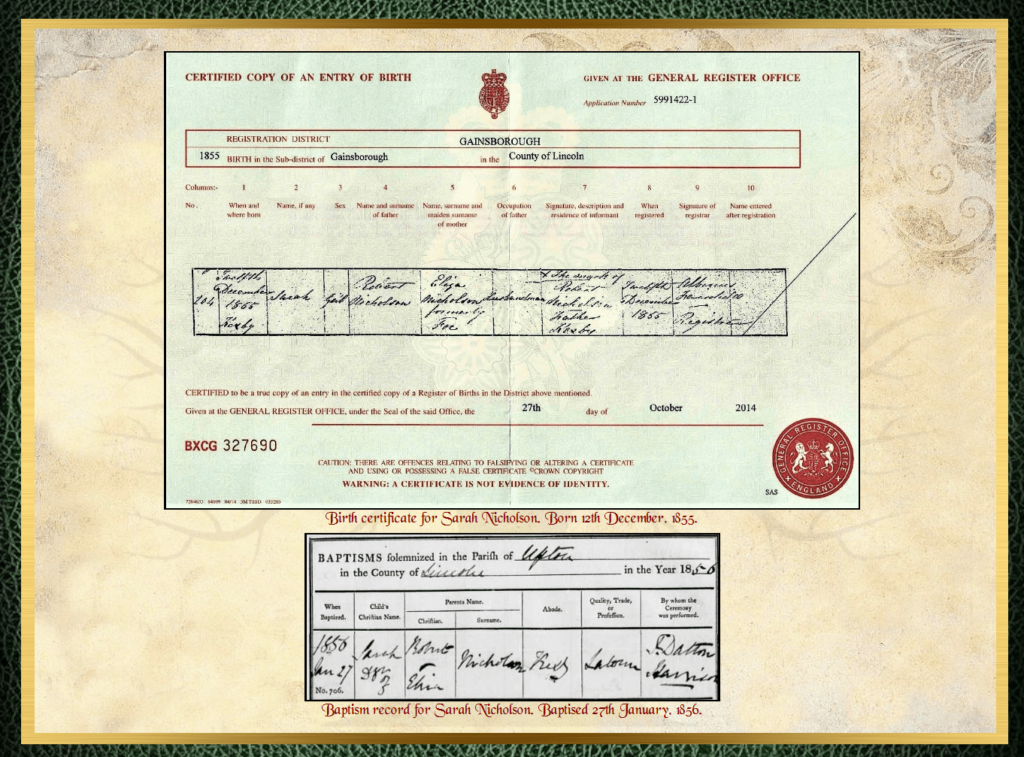 CERTIFIED COPY OF AN ENTRY OF BIRTH
GIVEN AT THE GENERAL REGISTER OFFICE
Application Number 5991422-1
REGISTRATION DISTRICT GAINSBOROUGH
1855 BIRTH in the Sub-district of Gainsborough in the County of Lincoln
Columns:- 1 2 3 4 5 6 7 8 9 10
No. When and where born Name, if any Sex Name and surname of father Name, surname and maiden surname of mother Occupation of father Signature, description and residence of informant When registered Signature of registrar Name entered after registration
204 Twelfth December 1855 Kexby Sarah Girl Robert Nicholson Eliza Nicholson formerly Foe Husbandman X The mark of Robert Nicholson Father Kexby Twelfth December 1855 Registrar
CERTIFIED to be a true copy of an entry in the certified copy of a Register of Births in the District above mentioned.
Given at the GENERAL REGISTER OFFICE, under the Seal of the said Office, the 27th day of October 2014
BXCG 327690
CAUTION: THERE ARE OFFENCES RELATING TO FALSIFYING OR ALTERING A CERTIFICATE
AND USING OR POSSESSING A FALSE CERTIFICATE ©CROWN COPYRIGHT
WARNING: A CERTIFICATE IS NOT EVIDENCE OF IDENTITY.
GENERAL REGISTER OFFICE
ENGLAND
SAS
Birth certificate for Sarah Nicholson. Born 12th December, 1855.
BAPTISMS solemnized in the Parish of Upton
in the County of Lincoln in the Year 1856
When Baptized. Child's Christian Name. Parents Name. Christian. Surname. Abode. Quality, Trade, or Profession. By whom the Ceremony was performed.
1856 Jan 27 No. 706. Sarah Robert Eliza Nicholson Kexby Labourer Dalton Harrison
Baptism record for Sarah Nicholson. Baptised 27th January, 1856.